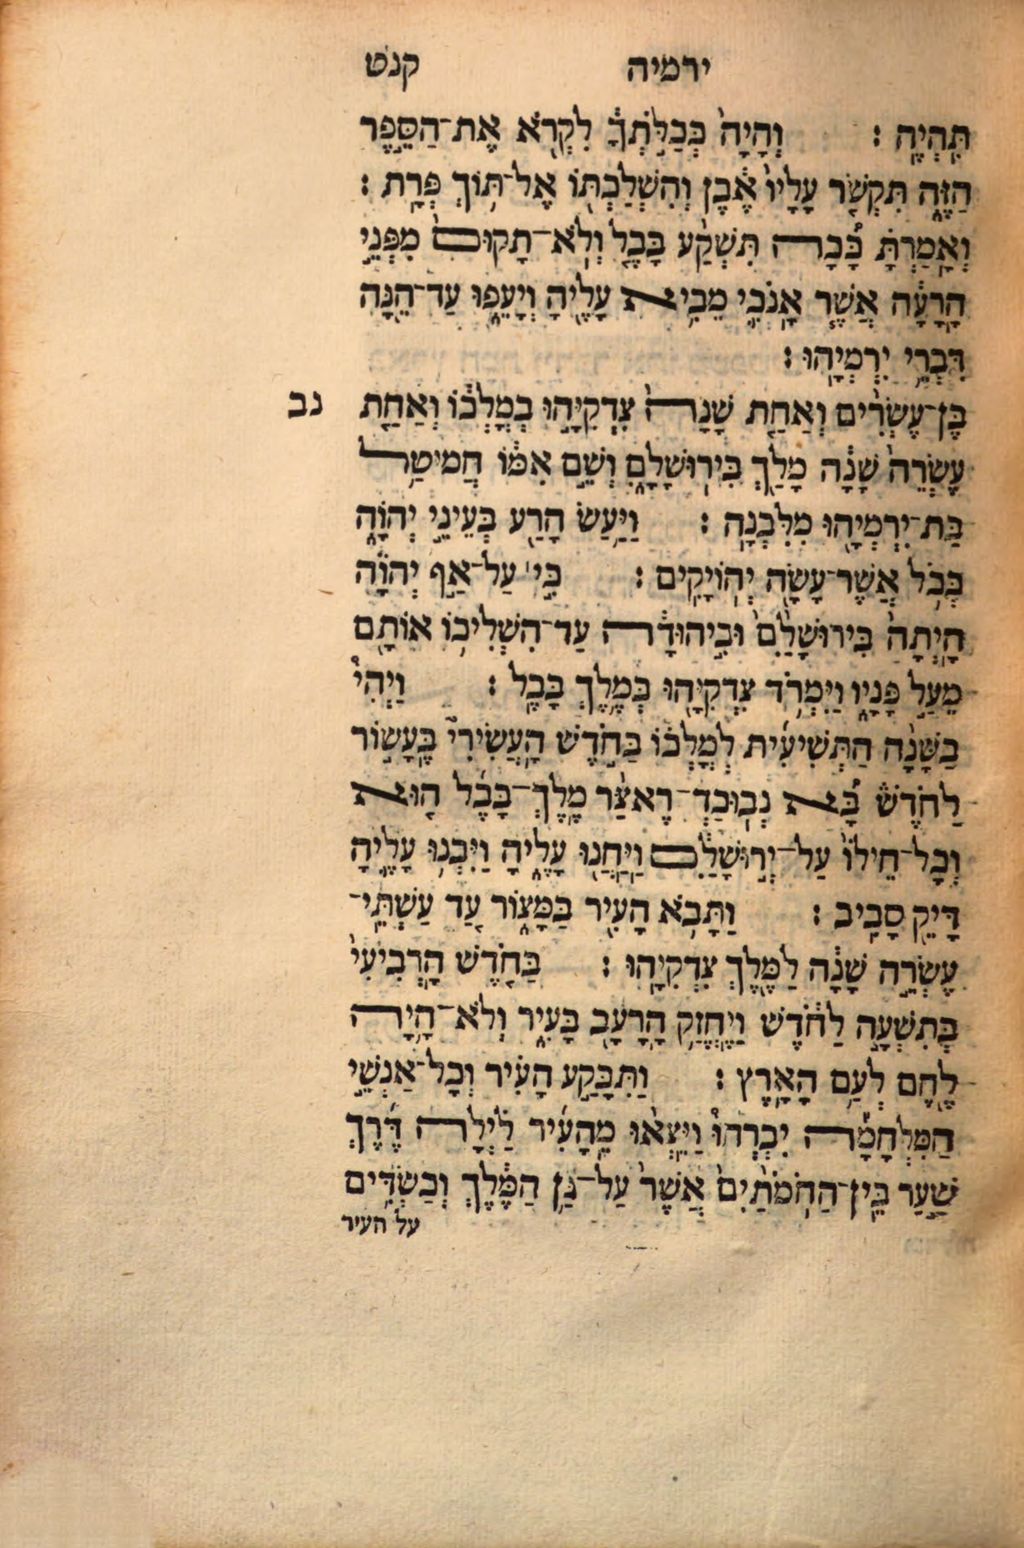 ירמיה קנט
תִּֽהְיֶֽה׃ וְהָיָה֙ כְּכַלֹּ֣תְךָ֔ לִקְרֹ֖א אֶת־הַסֵּ֣פֶר
הַזֶּ֑ה תִּקְשֹׁ֤ר עָלָיו֙ אֶ֔בֶן וְהִשְׁלַכְתּ֖וֹ אֶל־תּ֥וֹךְ פְּרָֽת׃
וְאָמַרְתָּ֗ כָּ֠כָה תִּשְׁקַ֨ע בָּבֶ֤ל וְלֹֽא־תָקוּם֙ מִפְּנֵ֣י
הָרָעָ֔ה אֲשֶׁ֧ר אָנֹכִ֛י מֵבִ֥יא עָלֶ֖יהָ וְיָעֵ֑פוּ עַד־הֵ֖נָּה
דִּבְרֵ֥י יִרְמְיָֽהוּ׃
בֶּן־עֶשְׂרִ֨ים וְאַחַ֤ת שָׁנָה֙ צִדְקִיָּ֣הוּ בְמָלְכ֔וֹ וְאַחַ֤ת נב
עֶשְׂרֵה֙ שָׁנָ֔ה מָלַ֖ךְ בִּירֽוּשָׁלִָ֑ם וְשֵׁ֣ם אִמּ֔וֹ חֲמיטַ֥ל
בַּת־יִרְמְיָ֖הוּ מִלִּבְנָֽה׃ וַיַּ֥עַשׂ הָרַ֖ע בְּעֵינֵ֣י יְהוָֹ֑ה
כְּכֹ֥ל אֲשֶׁר־עָשָׂ֖ה יְהֽוֹיָקִֽים׃ כִּ֣י׀ עַל־אַ֣ף יְהוָֹ֗ה
הָֽיְתָה֙ בִּירוּשָׁלִַ֨ם֙ וּבִ֣יהוּדָ֔ה עַד־הִשְׁלִיכ֥וֹ אוֹתָ֖ם
מֵעַ֣ל פָּנָ֑יו וַיִּמְרֹ֥ד צִדְקִיָּ֖הוּ בְּמֶ֥לֶךְ בָּבֶֽל׃ וַיְהִי֩
בַשָּׁנָ֨ה הַתְּשִׁיעִ֜ית לְמָלְכ֗וֹ בַּחֹ֣דֶשׁ הָעֲשִׂירִי֮ בֶּעָשׂ֣וֹר
לַחֹדֶשׁ֒ בָּ֠א נְבֽוּכַדְ־רֶאצַּ֨ר מֶֽלֶךְ־בָּבֶ֜ל ה֤וּא
וְכָל־חֵילוֹ֙ עַל־יְר֣וּשָׁלִַ֔ם וַֽיַּחֲנ֖וּ עָלֶ֑יהָ וַיִּבְנ֥וּ עָלֶ֖יהָ
דָּיֵ֥ק סָבִֽיב׃ וַתָּבֹ֥א הָעִ֖יר בַּמָּצ֑וֹר עַ֚ד עַשְׁתֵּ֣י־
עֶשְׂרֵ֣ה שָׁנָ֔ה לַמֶּ֖לֶךְ צִדְקִיָּֽהוּ׃ בַּחֹ֤דֶשׁ הָֽרְבִיעִי֙
בְּתִשְׁעָ֣ה לַחֹ֔דֶשׁ וַיֶּחֱזַ֥ק הָרָעָ֖ב בָּעִ֑יר וְלֹא־הָ֥יָה
לֶ֖חֶם לְעַ֥ם הָאָֽרֶץ׃ וַתִּבָּקַ֣ע הָעִ֗יר וְכָל־אַנְשֵׁ֣י
הַמִּלְחָמָ֡ה יִבְרְחוּ֩ וַיֵּצְא֨וּ מֵהָעִ֜יר לַ֗יְלָה דֶּ֜רֶךְ
שַׁ֤עַר בֵּין־הַחֹמֹתַ֨יִם֙ אֲשֶׁר֙ עַל־גַּ֣ן הַמֶּ֔לֶךְ וְכַשְׂדִּ֥ים
על העיר